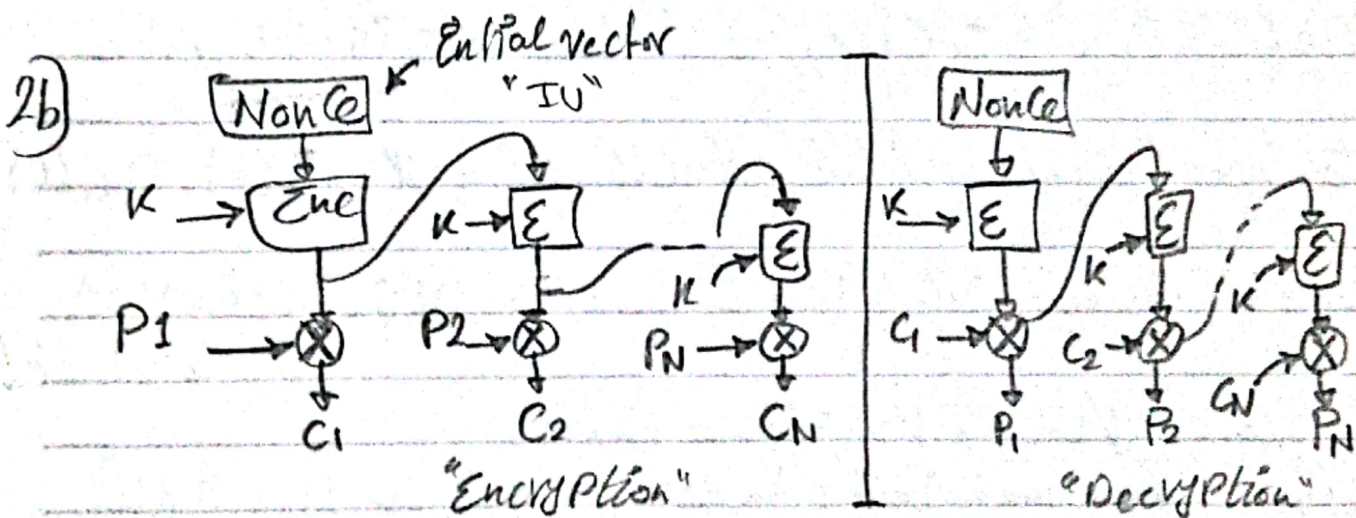 2b)
Enitial vector
"IV"
Nonce
K
Enc
K
Ɛ
K
Ɛ
P1
P2
PN
C1
C2
CN
"Encryption"
Nonce
K
Ɛ
K
Ɛ
K
Ɛ
C1
C2
CN
P1
P2
PN
"Decryption"